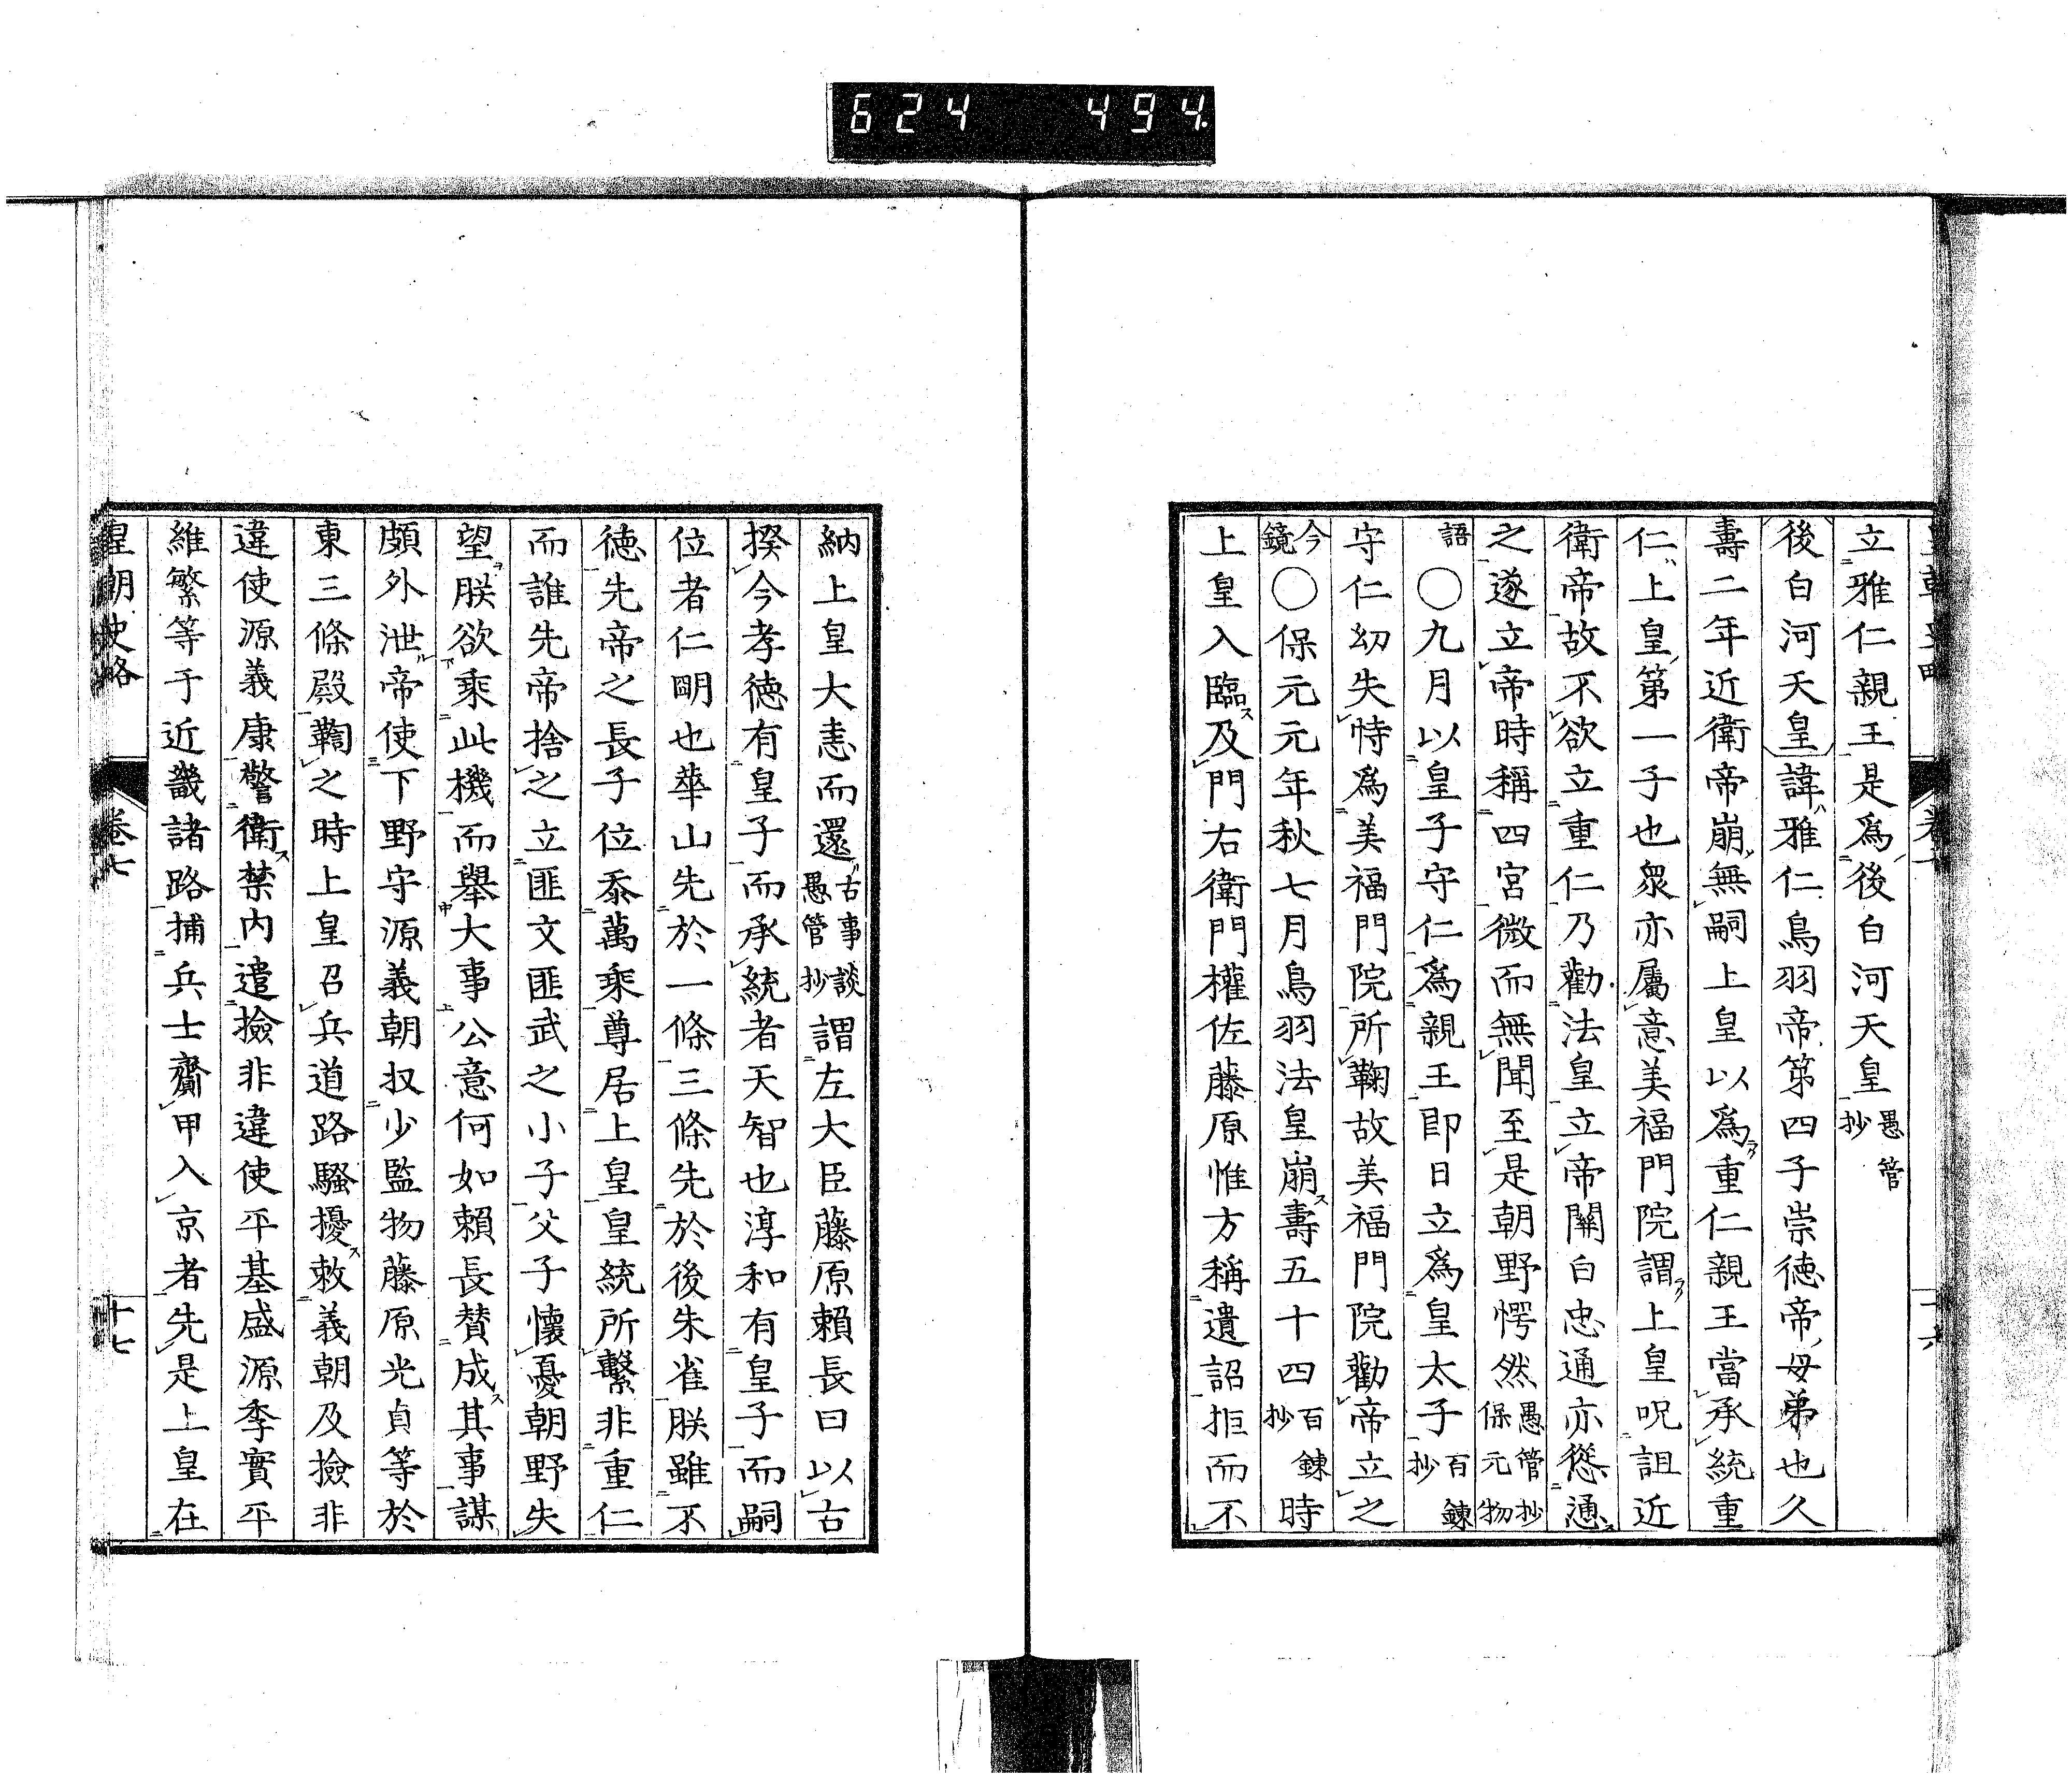 624 494.
立雅仁親王是爲後白河天皇愚管抄
後白河天皇諱雅仁鳥羽帝第四子崇徳帝母弟也久
壽二年近衛帝崩無嗣上皇以爲重仁親王當承統重
仁上皇第一子也衆亦屬意美福門院謂上皇呪詛近
衛帝故不欲立重仁乃勸法皇立帝關白忠通亦慫慂
之遂立帝時稱四宮微而無聞至是朝野愕然愚管抄保元物
語〇九月以皇子守仁爲親王即日立爲皇太子百錬抄
守仁幼失恃爲美福門院所鞠故美福門院勸帝立之
今鏡〇保元元年秋七月鳥羽法皇崩壽五十四百錬抄時
上皇入臨及門右衛門權佐藤原惟方稱遺詔拒而不
納上皇大恚而還古事談愚管抄謂左大臣藤原賴長曰以古
揆今孝徳有皇子而承統者天智也淳和有皇子而嗣
位者仁明也華山先於一條三條先於後朱雀朕雖不
徳先帝之長子位忝萬乘尊居上皇皇統所繫非重仁
而誰先帝捨之立匪文匪武之小子父子懷憂朝野失
望朕欲乘此機而舉大事公意何如賴長賛成其事謀
頗外泄帝使下野守源義朝収少監物藤原光貞等於
東三條殿鞫之時上皇召兵道路騷擾敕義朝及撿非
違使源義康警衛禁内遣撿非違使平基盛源季實平
維繁等于近畿諸路捕兵士齎甲入京者先是上皇在
皇朝史略 卷七 十七